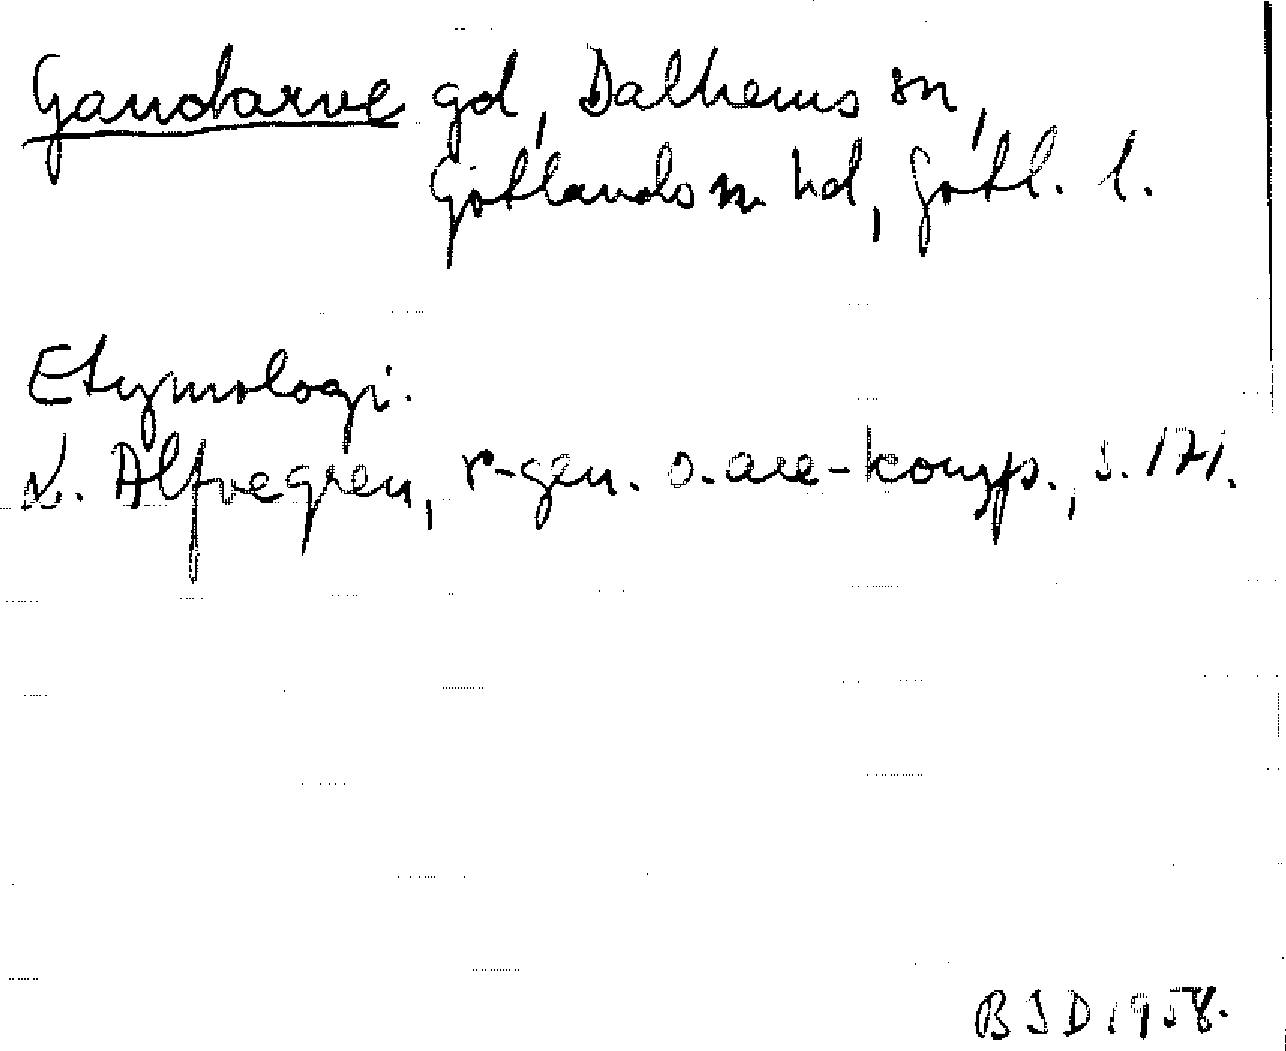 Gandarve gd, Dalhems sn,
Gotlands n. hd, Gotl. l.
Etymologi.
L. Alfvegren, r-gen. o. are-komp., s. 171.
BJD 1958.